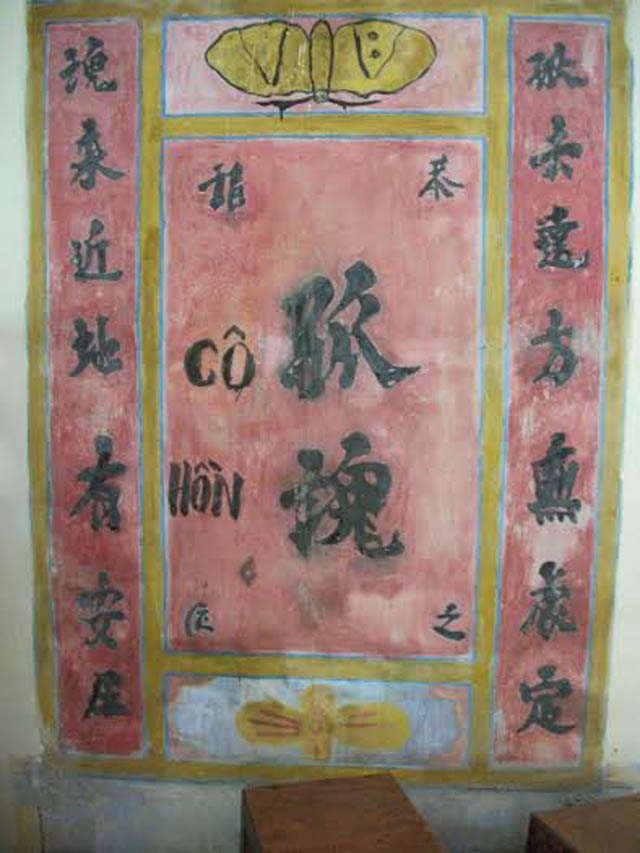 孤去遠方無定
恭
孤魂
之
CÔ
HỒN
位
魂來近地有安居